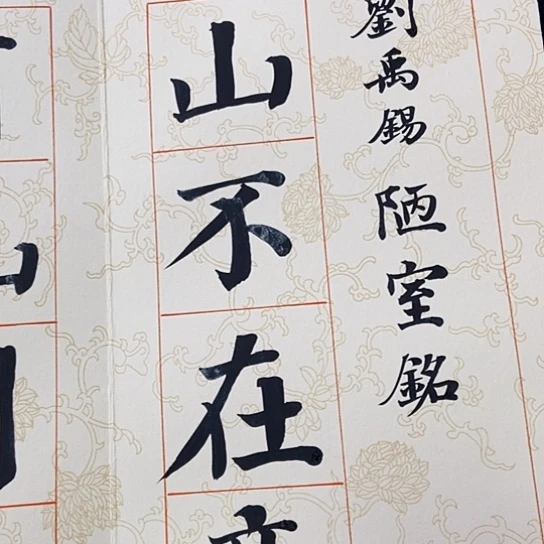 劉禹錫 陋室銘
山不在